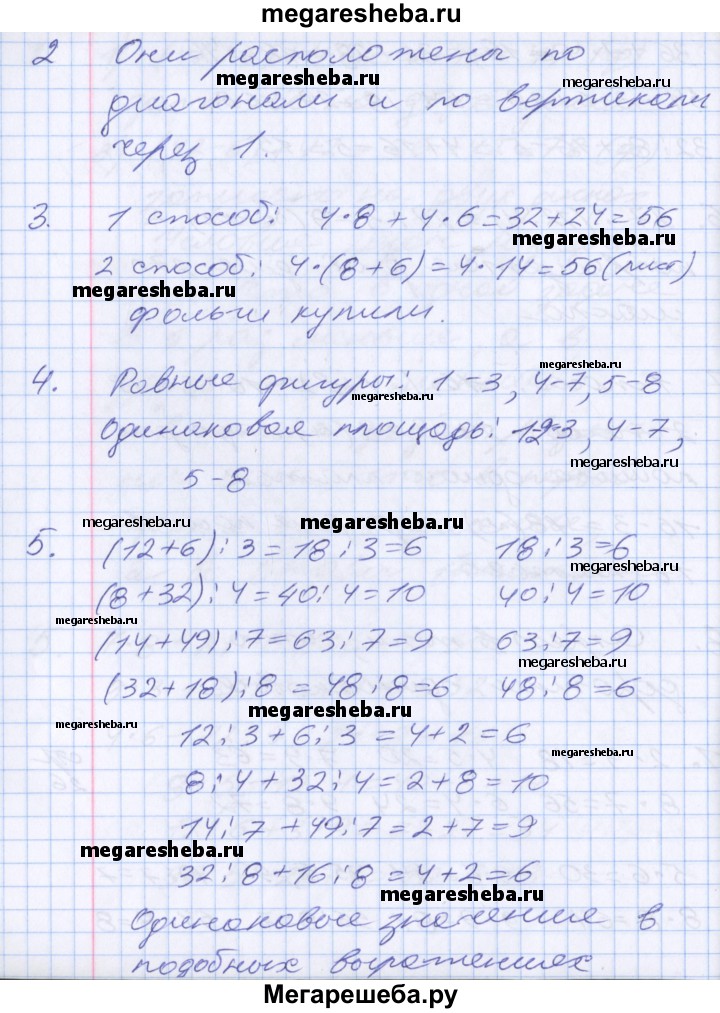 megaresheba.ru
2 Они расположены по
megaresheba.ru
megaresheba.ru
диагонали и по вертикали
через 1.
3. 1 способ: 4·8 + 4·6 = 32 + 24 = 56
megaresheba.ru
2 способ: 4·(8 + 6) = 4·14 = 56 (лист)
megaresheba.ru
фольги купили.
megaresheba.ru
4. Равные фигуры: 1-3, 4-7, 5-8
megaresheba.ru
Одинаковая площадь: 1-3, 4-7,
megaresheba.ru
5-8
megaresheba.ru
megaresheba.ru
5. (12+6):3 = 18:3=6 18:3=6
megaresheba.ru
(8+32):4=40:4=10 40:4=10
megaresheba.ru
(14+49):7=63:7=9 63:7=9
megaresheba.ru
(32+18):8 = 48:8=6 48:8=6
megaresheba.ru
megaresheba.ru
12:3+6:3 = 4+2=6
megaresheba.ru
8:4+32:4=2+8=10
megaresheba.ru
14:7+49:7=2+7=9
megaresheba.ru
32:8+16:8=4+2=6
megaresheba.ru
Одинаковые значение в
подобных выражениях
Мегарешеба.ру